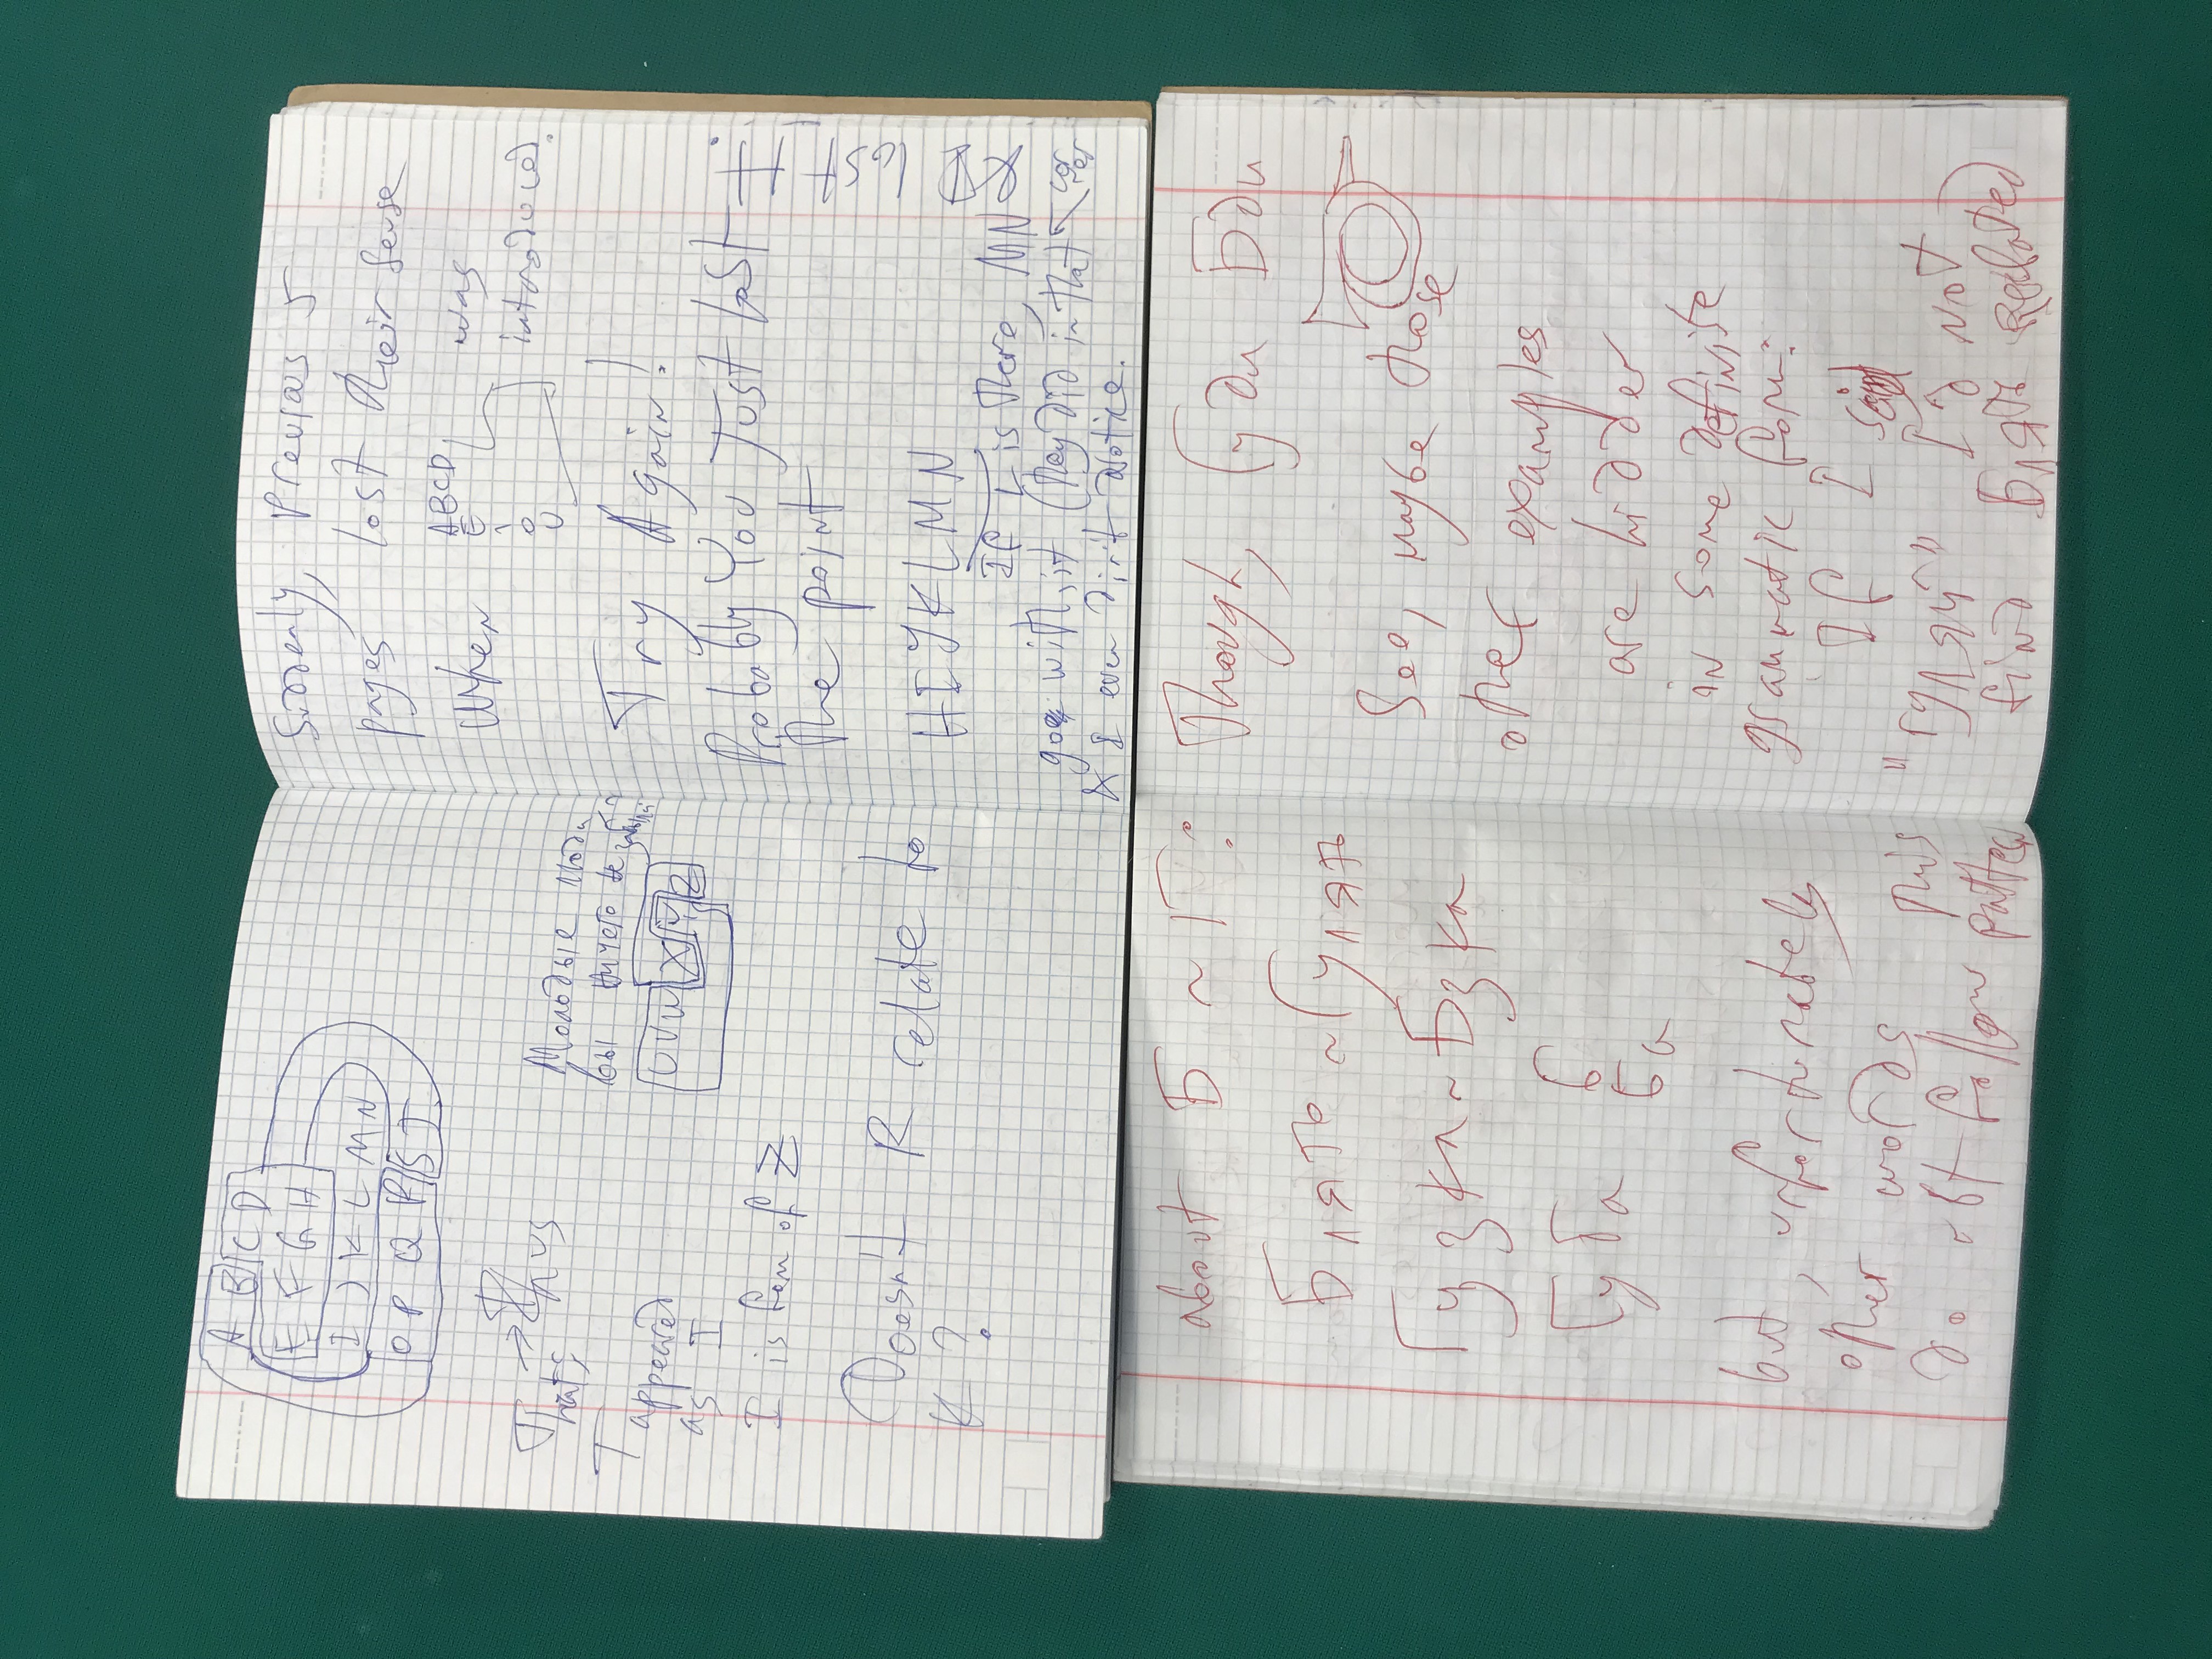 A B C D
E F G H
I J K L M N
O P Q R S T
That's → Thus
T
appeared
as I
I is fan of Z
Молодые люди
вы ничего не забыли?
U V W X Y Z
Doesn't R relate to
K ?
Suddenly, previous 5
pages lost their sense
When ABCD was
E
I introduced.
O
U
Try Again!
Probably You Just lost
the point
& D lost H.
HIJKLMN
If L is there, MN
go with it (they did in that corner
& I even din't notice.
about Б ~ Г:
Блять ~ Гулять
Гузка ~ Бзка
Губа б
ба
but, unfortunately
other words
do not follow this pattern
Though, Гуди Бди
See, maybe those
other examples
are hidden
in some definite
grammatic form:
If I said
"гуляй" I'd not
find Блять related